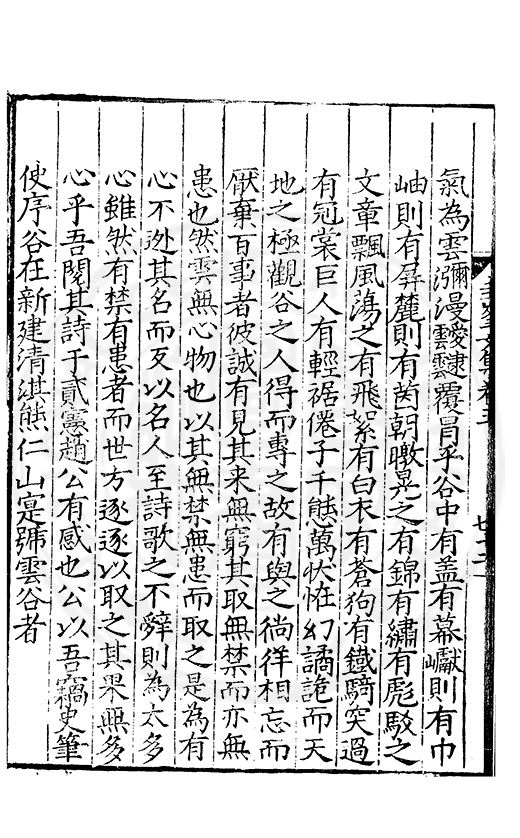 氣為雲瀰漫靉靆覆冐乎谷中有盖有幕巘則有巾
岫則有屏麓則有茵朝暾晃之有錦有繡有彪駁之
文章飄風蕩之有飛絮有白衣有蒼狗有鐵騎突過
有冠裳巨人有輕裾僊子千態萬狀恠幻譎詭而天
地之極觀谷之人得而專之故有與之徜徉相忘而
厭棄百事者彼誠有見其来無窮其取無禁而亦無
患也然雲無心物也以其無禁無患而取之是為有
心不迯其名而反以名人至詩歌之不辭則為太多
心雖然有禁有患者而世方逐逐以取之其果無多
心乎吾閱其詩于貳憲趙公有感也公以吾竊史筆
使序谷在新建清淇熊仁山寔號雲谷者